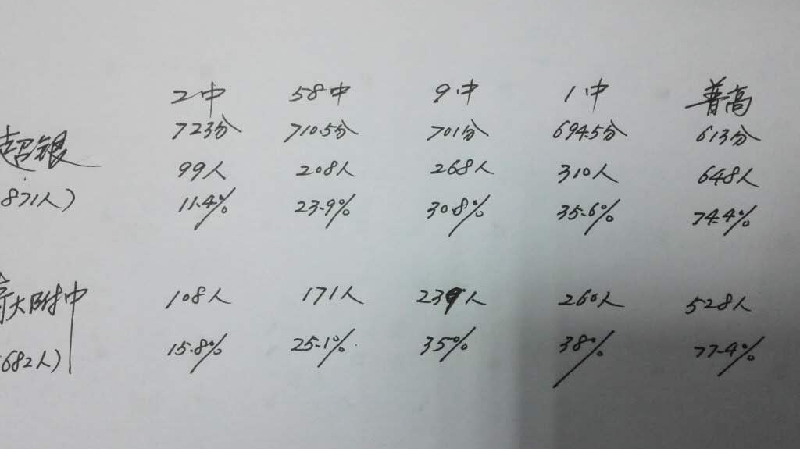 2中 58中 9中 1中 普高
723分 710.5分 701分 694.5分 613分
超银
99人 208人 268人 310人 648人
871人)
11.4% 23.9% 30.8% 35.6% 74.4%
大附中 108人 171人 239人 260人 528人
682人) 15.8% 25.1% 35% 38% 77.4%